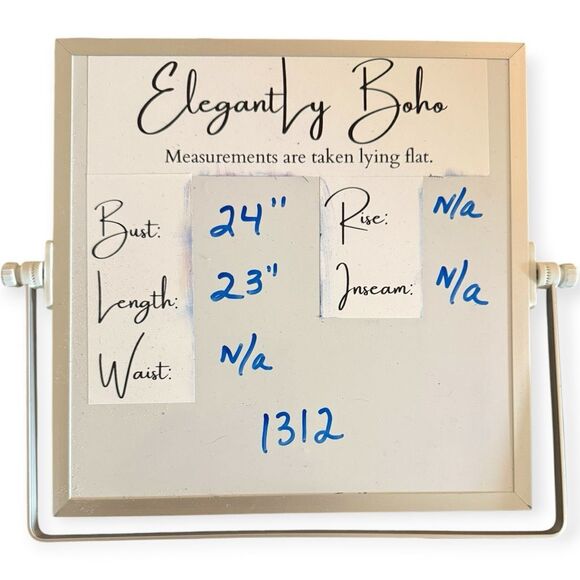 Elegantly Boho
Measurements are taken lying flat.
Bust: 24"
Length: 23"
Waist: N/a
Rise: N/a
Inseam: N/a
1312